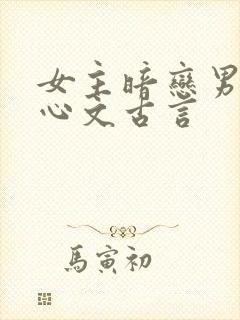 女主暗戀男
心文古言
馬寅初